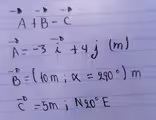 A⃗ + B⃗ - C⃗
A⃗ = -3 i⃗ + 4j (m)
B⃗ = (10m ; α = 290°) m
C⃗ = 5m ; N20° E